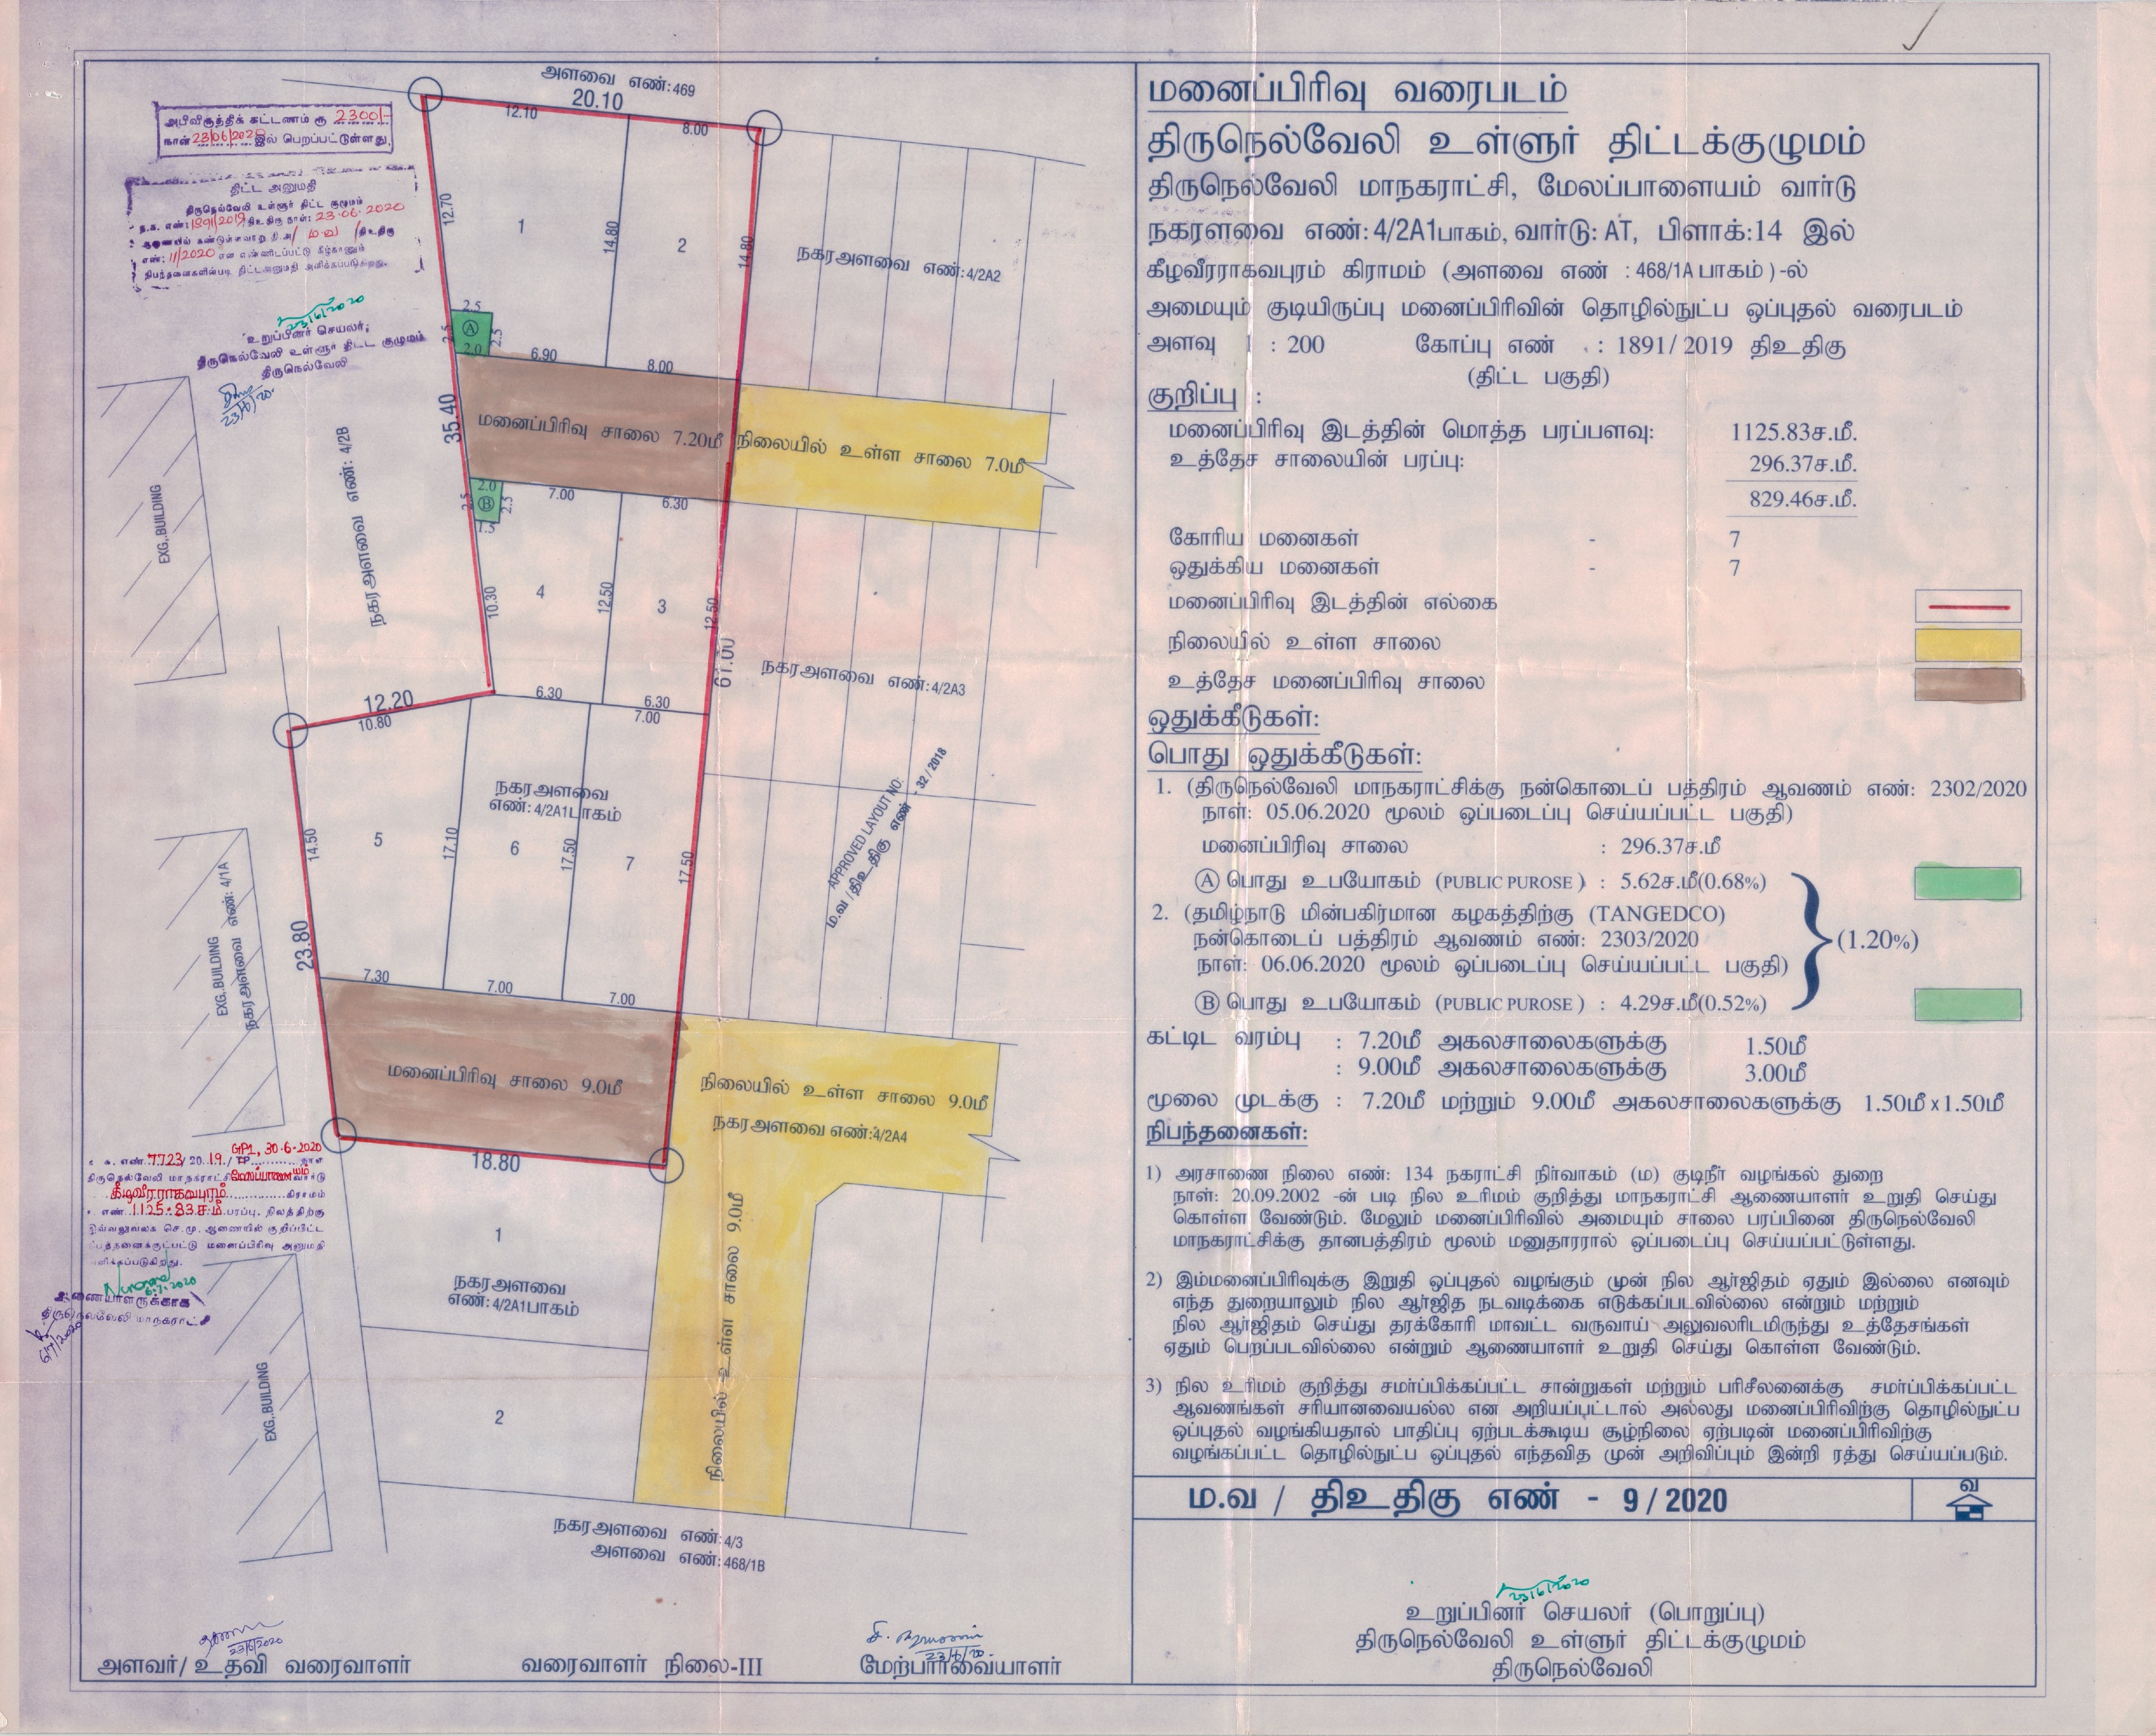 அளவை எண்:469
20.10
12.10
8.00
அபிவிருத்திக் கட்டணம் ரூ 2300/-
நாள் 23/06/2020 இல் பெறப்பட்டுள்ளது.
திட்ட அனுமதி
திருநெல்வேலி உள்ளூர் திட்ட குழுமம்
ந.க. எண்: 1891/2019 திஉதிகு நாள்: 23.06.2020
எண்: 11/2020 என எண்ணிடப்பட்டு கீழ்காணும்
நிபந்தனைகளின்படி திட்டஅனுமதி அளிக்கப்படுகிறது.
23/6/2020
உறுப்பினர் செயலர்,
திருநெல்வேலி உள்ளூர் திட்ட குழுமம்
திருநெல்வேலி
23/6/20
12.70
1
14.80
2
14.80
நகரஅளவை எண்:4/2A2
2.5
2.5
A
2.5
2.0
6.90
8.00
35.40
மனைப்பிரிவு சாலை 7.20மீ
நிலையில் உள்ள சாலை 7.0மீ
நகரஅளவை எண்: 4/2B
EXG,.BUILDING
2.0
2.5
B
2.5
1.5
7.00
6.30
10.30
4
12.50
3
12.50
61.00
நகரஅளவை எண்:4/2A3
12.20
10.80
6.30
6.30
7.00
நகரஅளவை
எண்:4/2A1பாகம்
APPROVED LAYOUT NO:
ம.வ /திஉதிகு எண் - 32 / 2018
14.50
5
17.10
6
17.50
7
17.50
EXG,.BUILDING
நகரஅளவை எண்: 4/1A
23.80
7.30
7.00
7.00
மனைப்பிரிவு சாலை 9.0மீ
நிலையில் உள்ள சாலை 9.0மீ
நகரஅளவை எண்:4/2A4
18.80
ந.க. எண் 7723/20 19./TP GP1, 30.6.2020
திருநெல்வேலி மாநகராட்சி மேலப்பாளையம் வார்டு
கீழவீரராகவபுரம் கிராமம்
எண் 1125.83 ச.மீ பரப்பு. நிலத்திற்கு
இவ்வலுவலக செ.மு. ஆணையில் குறிப்பிட்ட
நிபந்தனைக்குட்பட்டு மனைப்பிரிவு அனுமதி
அளிக்கப்படுகிறது.
6.7.2020
ஆணையாளருக்காக
திருநெல்வேலி மாநகராட்சி
6/7/2020
1
நகரஅளவை
எண்: 4/2A1பாகம்
2
நிலையில் உள்ள சாலை 9.0மீ
EXG,.BUILDING
நகரஅளவை எண்:4/3
அளவை எண்:468/1B
23/6/2020
23/6/20
அளவர்/ உதவி வரைவாளர்
வரைவாளர் நிலை-III
மேற்பார்வையாளர்
மனைப்பிரிவு வரைபடம்
திருநெல்வேலி உள்ளூர் திட்டக்குழுமம்
திருநெல்வேலி மாநகராட்சி, மேலப்பாளையம் வார்டு
நகரளவை எண்: 4/2A1பாகம், வார்டு: AT, பிளாக்:14 இல்
கீழவீரராகவபுரம் கிராமம் (அளவை எண் : 468/1A பாகம் ) -ல்
அமையும் குடியிருப்பு மனைப்பிரிவின் தொழில்நுட்ப ஒப்புதல் வரைபடம்
அளவு 1 : 200 கோப்பு எண் : 1891/ 2019 திஉதிகு
(திட்ட பகுதி)
குறிப்பு :
மனைப்பிரிவு இடத்தின் மொத்த பரப்பளவு: 1125.83ச.மீ.
உத்தேச சாலையின் பரப்பு: 296.37ச.மீ.
829.46ச.மீ.
கோரிய மனைகள் - 7
ஒதுக்கிய மனைகள் - 7
மனைப்பிரிவு இடத்தின் எல்கை
நிலையில் உள்ள சாலை
உத்தேச மனைப்பிரிவு சாலை
ஒதுக்கீடுகள்:
பொது ஒதுக்கீடுகள்:
1. (திருநெல்வேலி மாநகராட்சிக்கு நன்கொடைப் பத்திரம் ஆவணம் எண்: 2302/2020
நாள்: 05.06.2020 மூலம் ஒப்படைப்பு செய்யப்பட்ட பகுதி)
மனைப்பிரிவு சாலை : 296.37ச.மீ
A பொது உபயோகம் (PUBLIC PUROSE ) : 5.62ச.மீ(0.68%)
2. (தமிழ்நாடு மின்பகிர்மான கழகத்திற்கு (TANGEDCO)
நன்கொடைப் பத்திரம் ஆவணம் எண்: 2303/2020
நாள்: 06.06.2020 மூலம் ஒப்படைப்பு செய்யப்பட்ட பகுதி)
(1.20%)
B பொது உபயோகம் (PUBLIC PUROSE ) : 4.29ச.மீ(0.52%)
கட்டிட வரம்பு : 7.20மீ அகலசாலைகளுக்கு 1.50மீ
: 9.00மீ அகலசாலைகளுக்கு 3.00மீ
மூலை முடக்கு : 7.20மீ மற்றும் 9.00மீ அகலசாலைகளுக்கு 1.50மீ x 1.50மீ
நிபந்தனைகள்:
1) அரசாணை நிலை எண்: 134 நகராட்சி நிர்வாகம் (ம) குடிநீர் வழங்கல் துறை
நாள்: 20.09.2002 -ன் படி நில உரிமம் குறித்து மாநகராட்சி ஆணையாளர் உறுதி செய்து
கொள்ள வேண்டும். மேலும் மனைப்பிரிவில் அமையும் சாலை பரப்பினை திருநெல்வேலி
மாநகராட்சிக்கு தானபத்திரம் மூலம் மனுதாரரால் ஒப்படைப்பு செய்யப்பட்டுள்ளது.
2) இம்மனைப்பிரிவுக்கு இறுதி ஒப்புதல் வழங்கும் முன் நில ஆர்ஜிதம் ஏதும் இல்லை எனவும்
எந்த துறையாலும் நில ஆர்ஜித நடவடிக்கை எடுக்கப்படவில்லை என்றும் மற்றும்
நில ஆர்ஜிதம் செய்து தரக்கோரி மாவட்ட வருவாய் அலுவலரிடமிருந்து உத்தேசங்கள்
ஏதும் பெறப்படவில்லை என்றும் ஆணையாளர் உறுதி செய்து கொள்ள வேண்டும்.
3) நில உரிமம் குறித்து சமர்ப்பிக்கப்பட்ட சான்றுகள் மற்றும் பரிசீலனைக்கு சமர்ப்பிக்கப்பட்ட
ஆவணங்கள் சரியானவையல்ல என அறியப்பட்டால் அல்லது மனைப்பிரிவிற்கு தொழில்நுட்ப
ஒப்புதல் வழங்கியதால் பாதிப்பு ஏற்படக்கூடிய சூழ்நிலை ஏற்படின் மனைப்பிரிவிற்கு
வழங்கப்பட்ட தொழில்நுட்ப ஒப்புதல் எந்தவித முன் அறிவிப்பும் இன்றி ரத்து செய்யப்படும்.
ம.வ / திஉதிகு எண் - 9 / 2020
வ
23/6/2020
உறுப்பினர் செயலர் (பொறுப்பு)
திருநெல்வேலி உள்ளூர் திட்டக்குழுமம்
திருநெல்வேலி